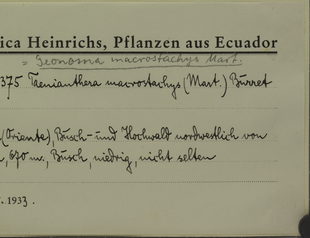 ica Heinrichs, Pflanzen aus Ecuador
= Geonoma macrostachys Mart.
375 Taenianthera macrostachys (Mart.) Burret
(Oriente), Busch- und Hochwald nordwestlich von
, 670 m, Busch, niedrig, nicht selten
. 1933.